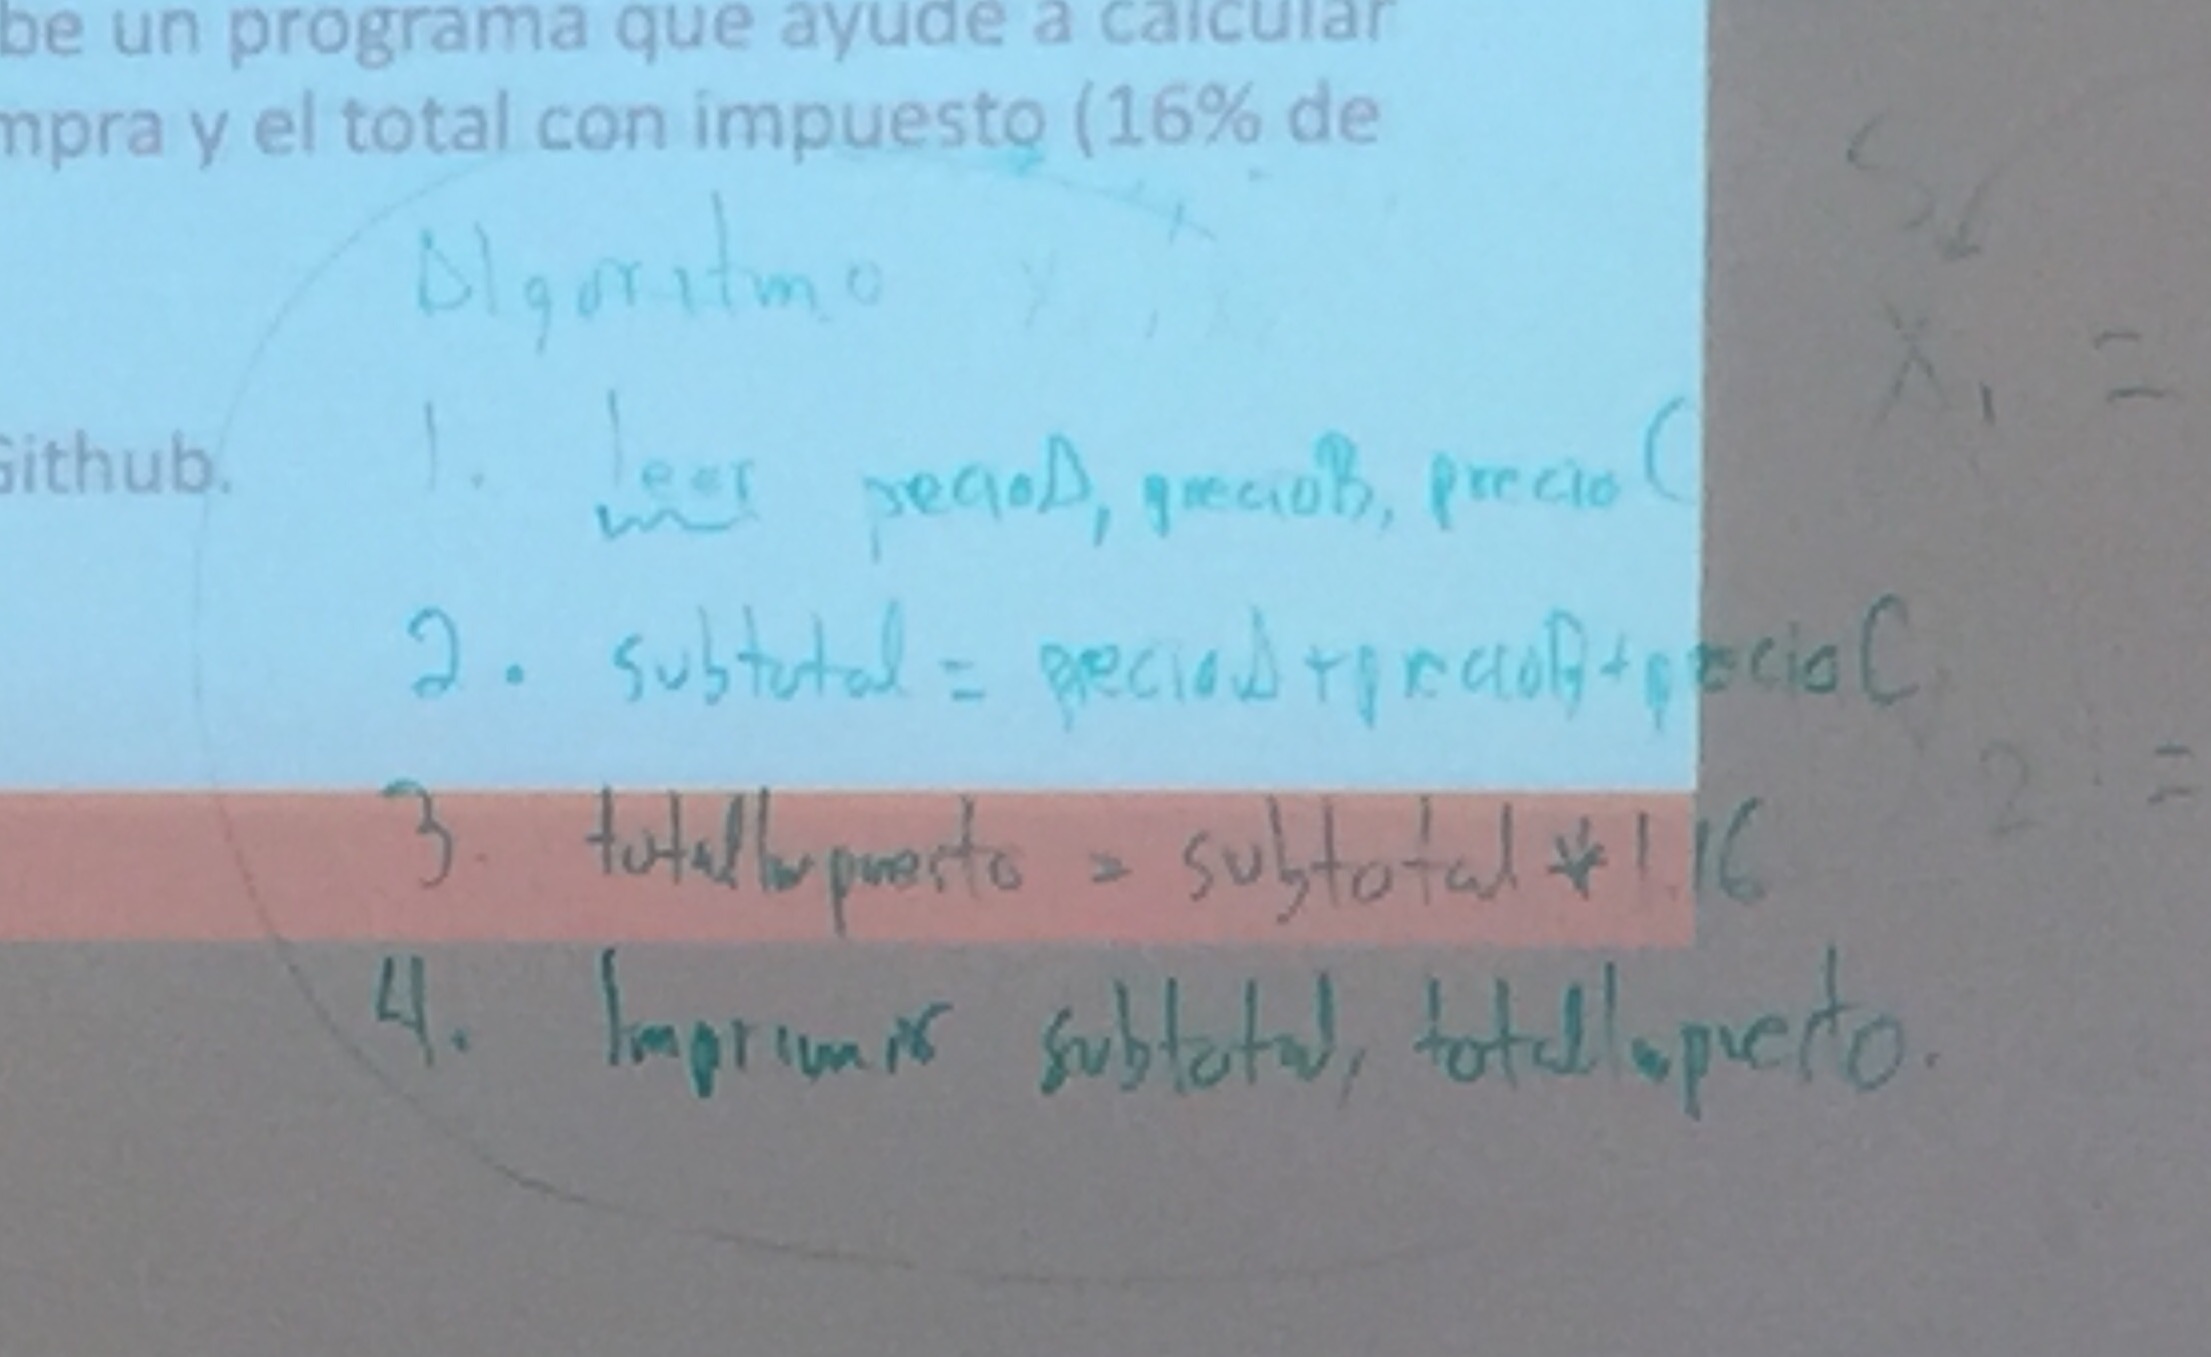 be un programa que ayude a calcular
mpra y el total con impuesto (16% de
Github.
Algoritmo
1. leer precioA, precioB, precioC
2. subtotal = precioA + precioB + precioC
3. totalImpuesto = subtotal * 1.16
4. Imprimir subtotal, totalImpuesto.
X1 =
2 =